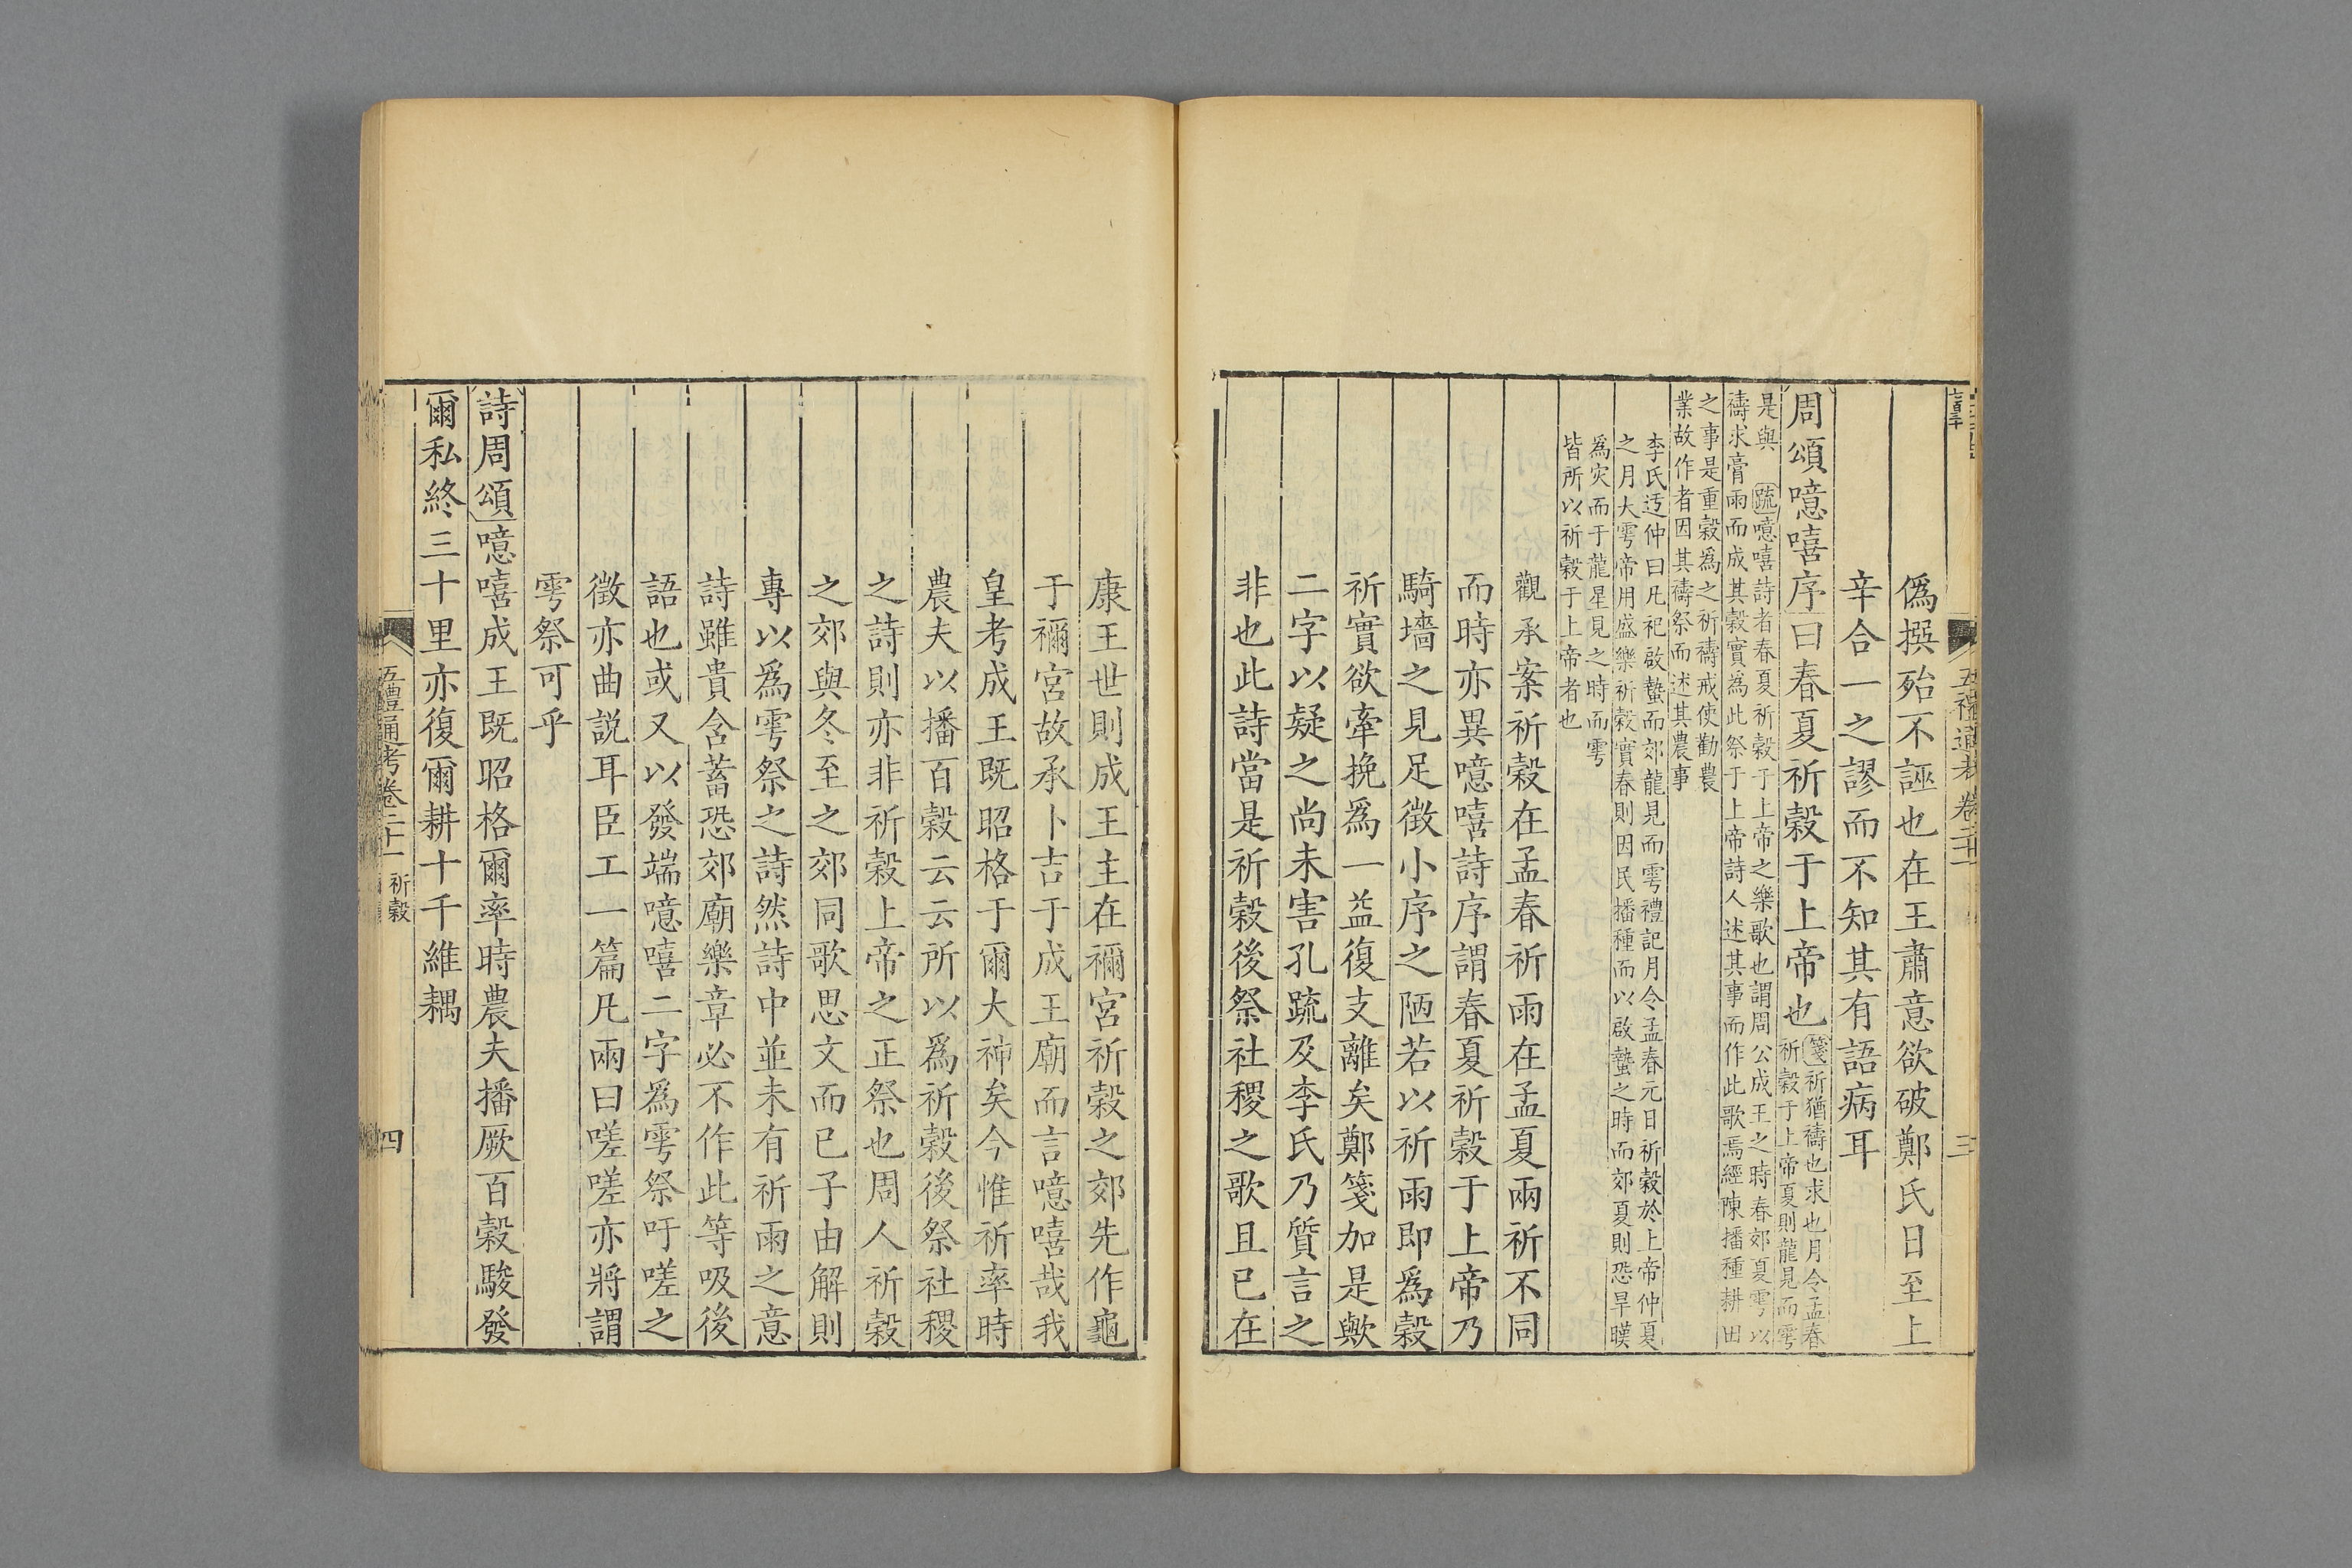 五禮通考 卷二十一 三
僞撰殆不誣也在王肅意欲破鄭氏日至上
辛合一之謬而不知其有語病耳
周頌噫嘻序曰春夏祈穀于上帝也
箋祈猶禱也求也月令孟春
祈穀于上帝夏則龍見而雩
是與 疏噫嘻詩者春夏祈穀于上帝之樂歌也謂周公成王之時春郊夏雩以
禱求膏雨而成其穀實爲此祭于上帝詩人述其事而作此歌焉經陳播種耕田
之事是重穀爲之祈禱戒使勸農
業故作者因其禱祭而述其農事
李氏迃仲曰凡祀啟蟄而郊龍見而雩禮記月令孟春元日祈穀於上帝仲夏
之月大雩帝用盛樂祈穀實春則因民播種而以啟蟄之時而郊夏則恐旱暵
爲灾而于龍星見之時而雩
皆所以祈穀于上帝者也
觀承案祈穀在孟春祈雨在孟夏兩祈不同
而時亦異噫嘻詩序謂春夏祈穀于上帝乃
騎墻之見足徵小序之陋若以祈雨即爲穀
祈實欲牽挽爲一益復支離矣鄭箋加是歟
二字以疑之尚未害孔疏及李氏乃質言之
非也此詩當是祈穀後祭社稷之歌且已在
康王世則成王主在禰宮祈穀之郊先作龜
于禰宮故承卜吉于成王廟而言噫嘻哉我
皇考成王既昭格于爾大神矣今惟祈率時
農夫以播百穀云云所以爲祈穀後祭社稷
之詩則亦非祈穀上帝之正祭也周人祈穀
之郊與冬至之郊同歌思文而已子由解則
專以爲雩祭之詩然詩中並未有祈雨之意
詩雖貴含蓄恐郊廟樂章必不作此等吸後
語也或又以發端噫嘻二字爲雩祭吁嗟之
徵亦曲説耳臣工一篇凡兩曰嗟嗟亦將謂
雩祭可乎
詩周頌噫嘻成王既昭格爾率時農夫播厥百穀駿發
爾私終三十里亦復爾耕十千維耦
五禮通考卷二十一 祈穀 四